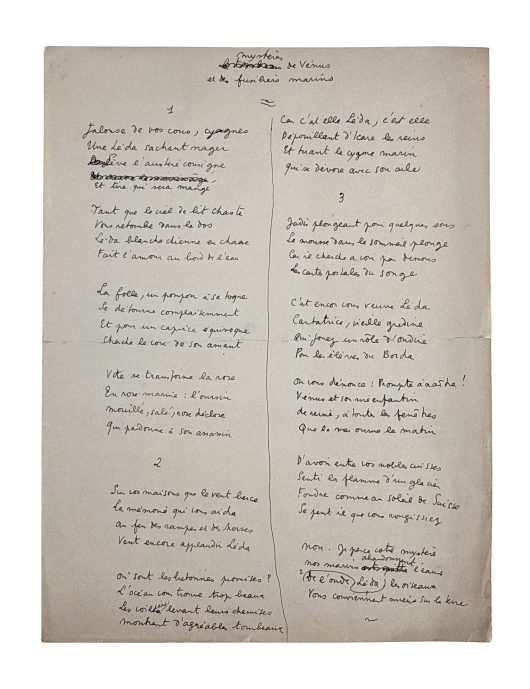 mystères
de Vénus
et des funérais marins
1
Jalouse de vos cous, cygnes
Une Léda sachant nager
Lève l'austère consigne
Et tire qui sera mangé
Tant que le ciel de lit chaste
Vous retombe dans le dos
Léda blanche chienne en chasse
Fait l'amour au bord de l'eau
La folle, un pompon à sa toque
Se détourne complaisamment
Et pour un caprice équivoque
Cherche le cou de son amant
Vite se transforme la rose
En rose marine : l'oursin
mouillé, salé, rose déclose
Qui pardonne à son assassin
2
Sur vos maisons que le vent berce
La mémoire qui vous aida
Au feu des rampes et des herses
Vent encore applaudir Léda
Où sont les bretonnes promises ?
L'océan vous trouve trop beaux
Les voiles levant leurs chemises
montrent d'agréables tombeaux
Car c'est elle Léda, c'est elle
Dépouillant d'Icare les reins
Et tuant le cygne marin
qui se dévore avec son aile
3
Jadis plongeant pour quelques sous
Le mousse dans le sommeil plonge
Car il cherche à voir par dessous
Les cartes postales du songe
C'est encor vous veuve Léda
Cantatrice, vieille gredine
Qui jouez un rôle d'ondine
Pour les élèves du Borda
On vous dénonce : Prompte à naître !
Vénus et son
de neiné, à toutes les fenêtres
Que la mer ouvre le matin
D'avoir entre vos nobles cuisses
Senti la flamme d'un glacier
Fondre comme au soleil de Suisse
Se peut-il que vous rougissiez
Non. Je perce votre mystère
nos marins abandonnent l'eau
De l'onde, Léda, les oiseaux
Vous conviennent mieux sur la terre